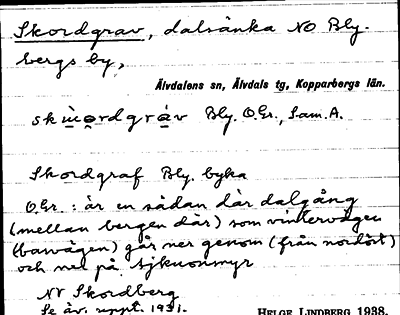 Skordgrav, dalsänka NO Bly-
bergs by,
Älvdalens sn, Älvdals tg, Kopparbergs län.
Bly. O.Gr., Sam. A.
Skordgraf Bly. byka
O.Gr.: är en sådan där dalgång
(mellan bergen där) som vintervägen
går ner genom (från nordöst)
och ner på
NV Skordberg
Se äv. uppt. 1931.
HELGE LINDBERG 1938.